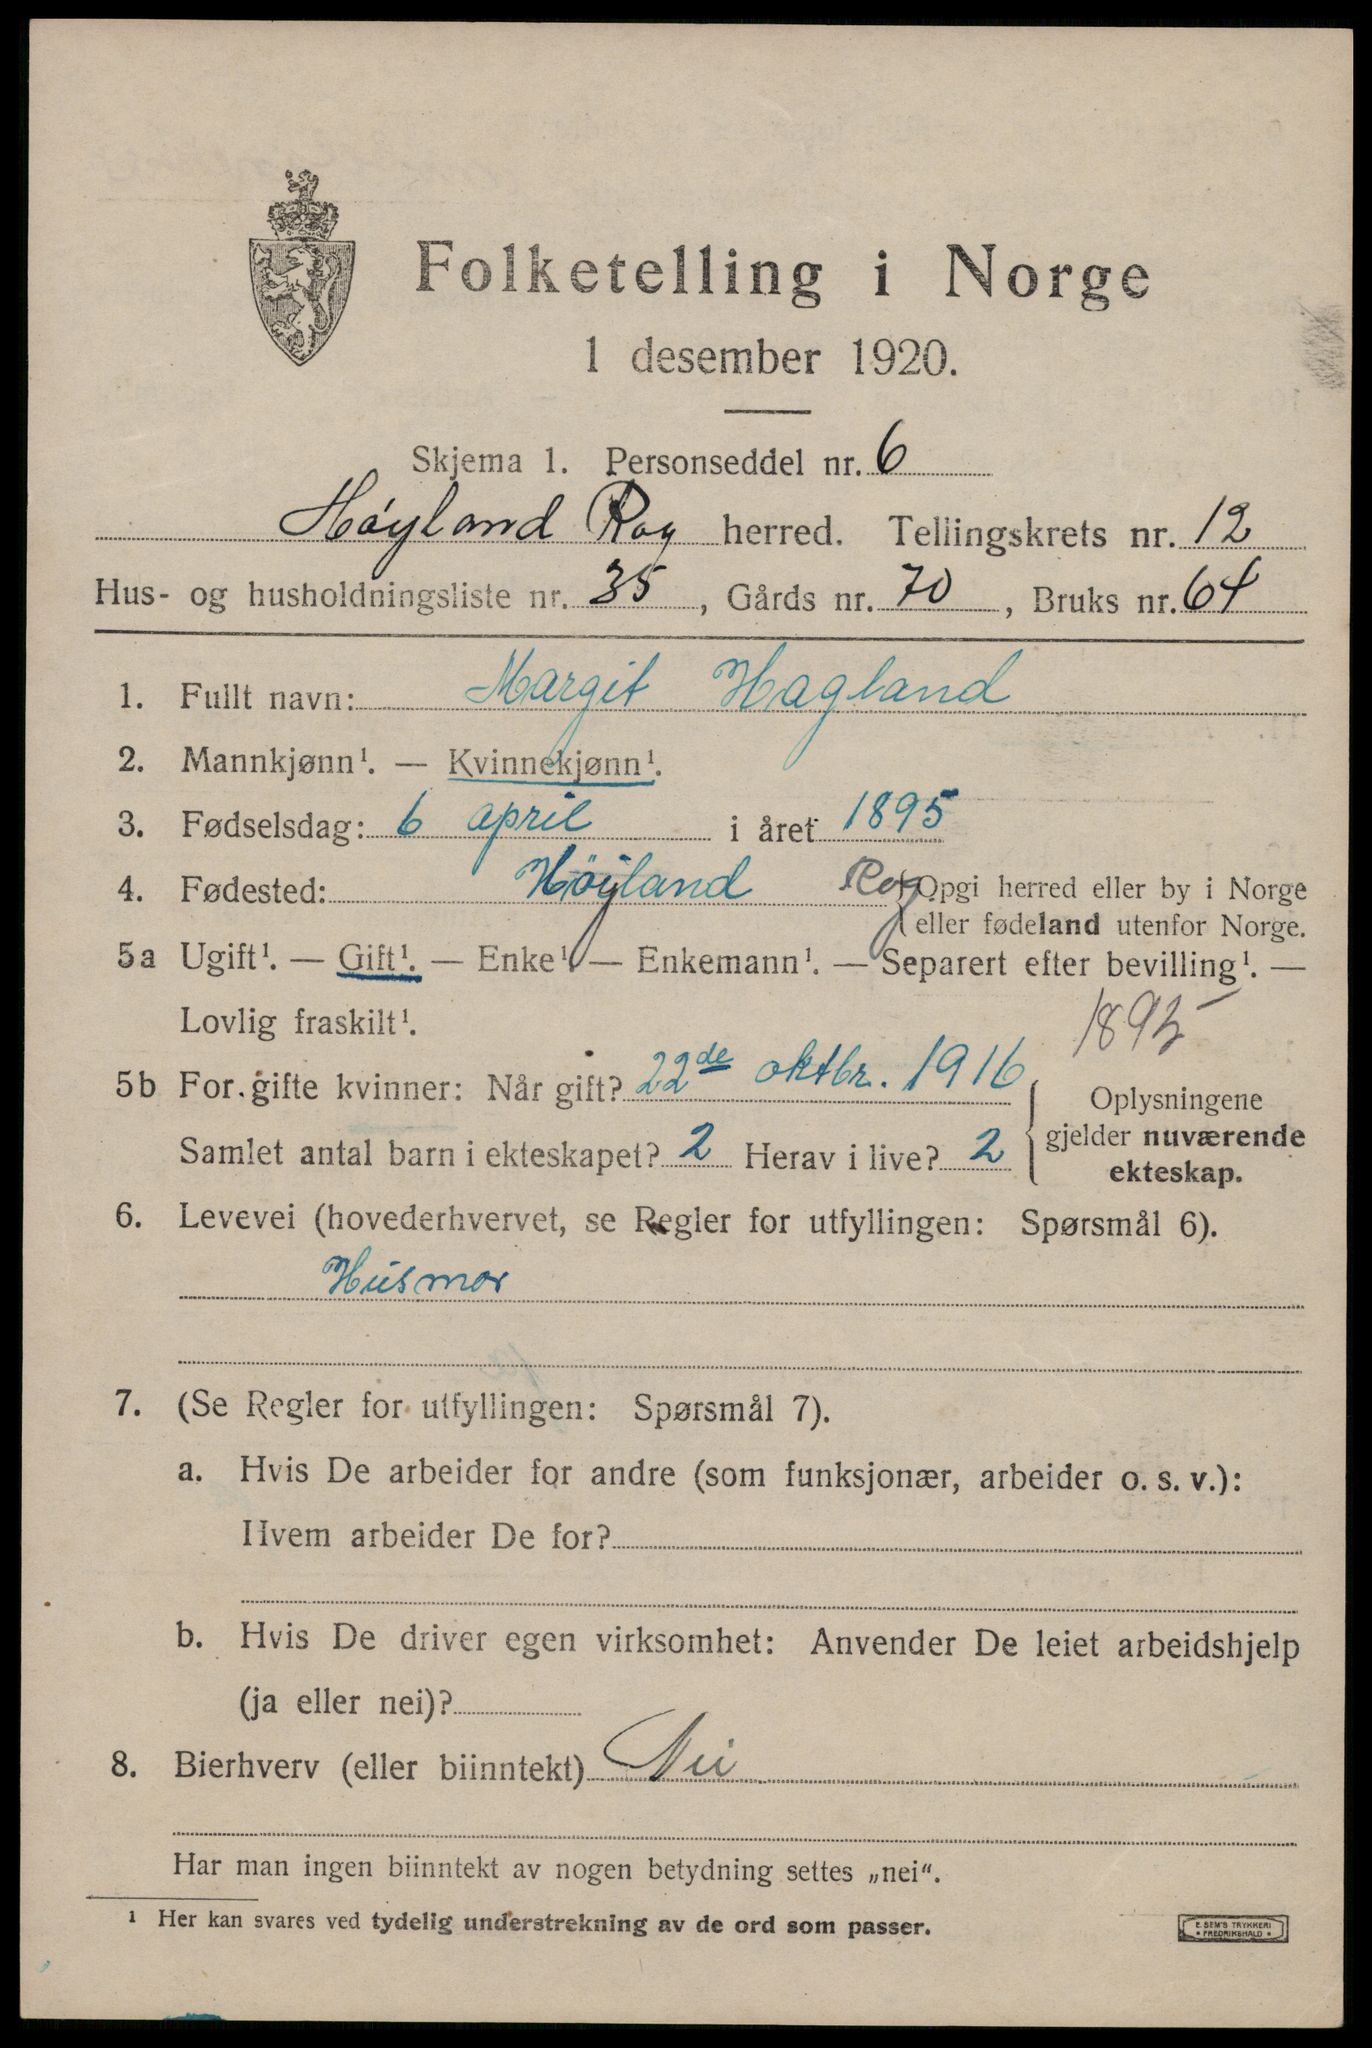 Folketelling i Norge
1 desember 1920.
Skjema 1. Personseddel nr. 6
Høyland Rog herred. Tellingskrets nr. 12
Hus- og husholdningsliste nr. 35, Gårds nr. 70, Bruks nr. 64
1. Fullt navn: Margit Hagland
2. Mannkjønn¹. — Kvinnekjønn¹.
3. Fødselsdag: 6 april i året 1895
4. Fødested: Höyland Rog { Opgi herred eller by i Norge
eller fødeland utenfor Norge.
5a Ugift¹. — Gift¹. — Enke¹. — Enkemann¹. — Separert efter bevilling¹. —
Lovlig fraskilt¹.
1895
5b For gifte kvinner: Når gift? 22de oktbr. 1916
Samlet antal barn i ekteskapet? 2 Herav i live? 2
Oplysningene
gjelder nuværende
ekteskap.
6. Levevei (hovederhvervet, se Regler for utfyllingen: Spørsmål 6).
Husmor
7. (Se Regler for utfyllingen: Spørsmål 7).
a. Hvis De arbeider for andre (som funksjonær, arbeider o. s. v.):
Hvem arbeider De for?
b. Hvis De driver egen virksomhet: Anvender De leiet arbeidshjelp
(ja eller nei)?
8. Bierhverv (eller biinntekt) Nei
Har man ingen biinntekt av nogen betydning settes „nei“.
¹ Her kan svares ved tydelig understrekning av de ord som passer.
E. SEM'S TRYKKERI
* FREDRIKSHALD *